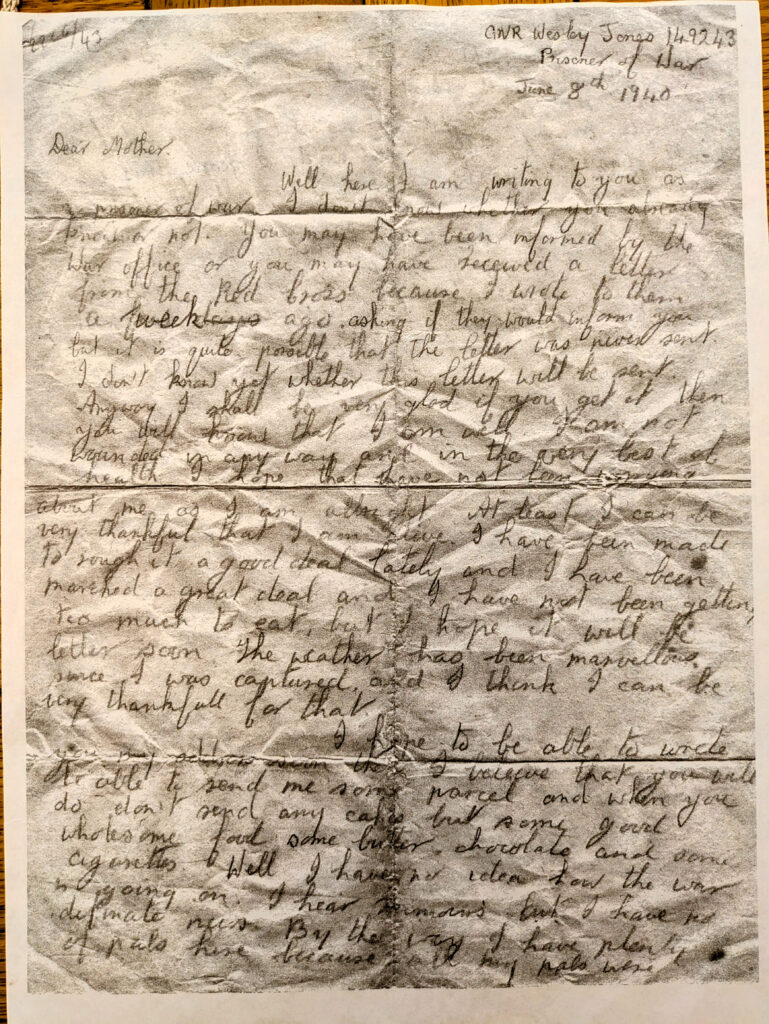 /43
GNR Wesley Jones 149243
Prisoner of War
June 8th 1940
Dear Mother.
Well here I am writing to you as
a prisoner of war. I don't know whether you already
know or not. You may have been informed by the
War office or you may have received a letter
from the Red Cross because I wrote to them
a week ago asking if they would inform you
but it is quite possible that the letter was never sent.
I don't know yet whether this letter will be sent.
Anyway I shall be very glad if you get it then
you will know that I am well. I am not
wounded in any way and in the very best of
health I hope that have not been worrying
about me as I am alright At least I can be
very thankful that I am alive. I have been made
to rough it a good deal lately and I have been
marched a great deal and I have not been getting
too much to eat, but I hope it will be
better soon The weather has been marvellous
since I was captured and I think I can be
very thankfull for that
I hope to be able to wrote
you my address soon then I believe that you will
be able to send me some parcel and when you
do don't send any cakes but some good
wholesome food some butter, chocolate and some
cigarettes Well I have no idea how the war
is going on. I hear rumours but I have no
definate news. By the way I have plenty
of pals here because all my pals were